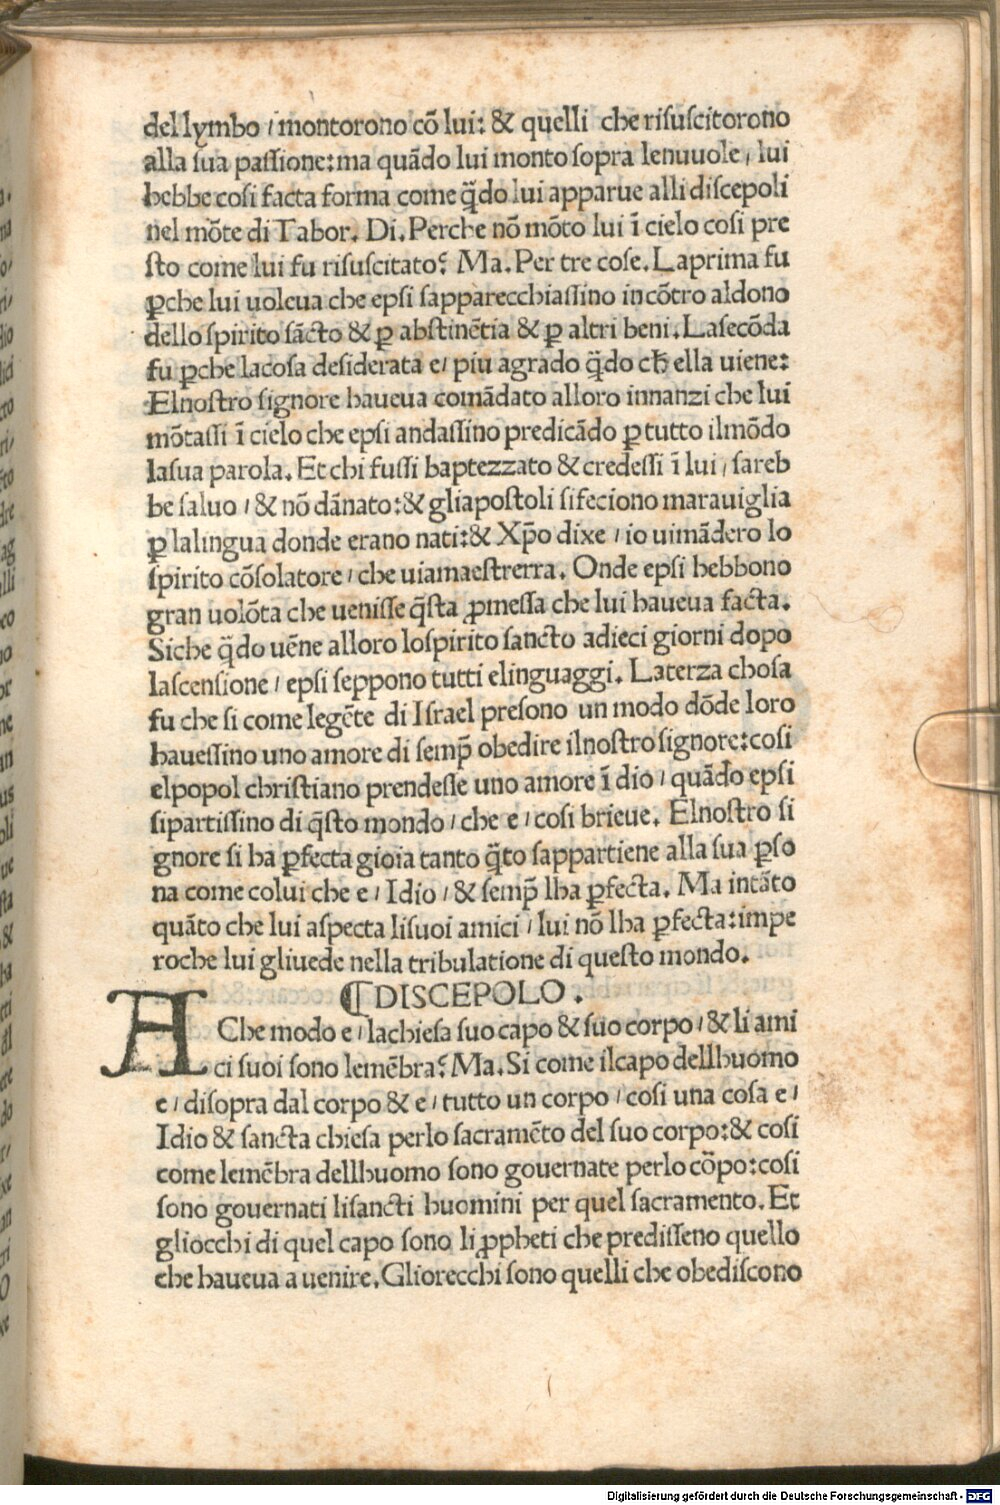 del lymbo / montorono cõ lui: & quelli che risuscitorono
alla sua passione: ma quãdo lui monto sopra lenuuole, lui
hebbe cosi facta forma come q̃do lui apparue alli discepoli
nel mõte di Tabor. Di. Perche nõ mõto lui ĩ cielo cosi pre
sto come lui fu risuscitato? Ma. Per tre cose. Laprima fu
ꝑche lui uoleua che epsi sapparecchiassino incõtro aldono
dello spirito sãcto & ꝑ abstinẽtia & ꝑ altri beni. Lasecõda
fu ꝑche lacosa desiderata e / piu agrado q̃do cħ ella uiene:
Elnostro signore haueua comãdato alloro innanzi che lui
mõtassi ĩ cielo che epsi andassino predicãdo ꝑ tutto ilmõdo
lasua parola. Et chi fussi baptezzato & credessi ĩ lui / sareb
be saluo / & nõ dãnato: & gliapostoli sifeciono marauiglia
ꝑ lalingua donde erano nati: & Xp̃o dixe / io uimãdero lo
spirito cõsolatore / che uiamaestrerra. Onde epsi hebbono
gran uolõta che uenisse q̃sta ꝓmessa che lui haueua facta.
Siche q̃do uẽne alloro lospirito sancto adieci giorni dopo
lascensione / epsi seppono tutti elinguaggi. Laterza chosa
fu che si come legẽte di Israel presono un modo dõde loro
hauessino uno amore di semp̃ obedire ilnostro signore: cosi
elpopol christiano prendesse uno amore ĩ dio / quãdo epsi
sipartissino di q̃sto mondo / che e / cosi brieue. Elnostro si
gnore si ha ꝑfecta gioia tanto q̃to sappartiene alla sua ꝑso
na come colui che e / Idio / & semp̃ lha ꝑfecta. Ma intãto
quãto che lui aspecta lisuoi amici / lui nõ lha ꝑfecta: impe
roche lui gliuede nella tribulatione di questo mondo.
⸿DISCEPOLO.
A Che modo e / lachiesa suo capo & suo corpo / & li ami
ci suoi sono lemẽbra? Ma. Si come ilcapo dellhuomo
e / disopra dal corpo & e / tutto un corpo / cosi una cosa e /
Idio & sancta chiesa perlo sacramẽto del suo corpo: & cosi
come lemẽbra dellhuomo sono gouernate perlo cõpo: cosi
sono gouernati lisancti huomini per quel sacramento. Et
gliocchi di quel capo sono li ꝓpheti che predisseno quello
che haueua a uenire. Gliorecchi sono quelli che obediscono
Digitalisierung gefördert durch die Deutsche Forschungsgemeinschaft - DFG